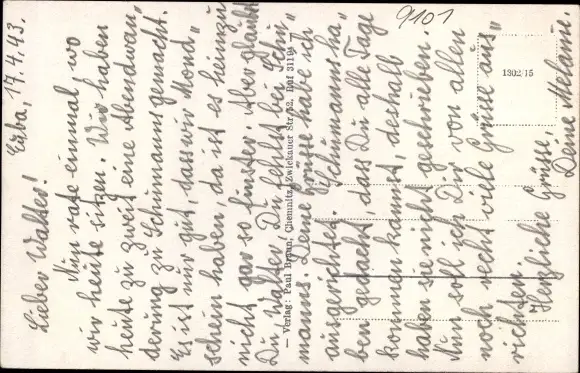 9101
Erba, 17.4.43.
Lieber Walter!
Nun rate einmal, wo
wir heute sitzen. Wir haben
heute zu zweit eine Abendwan"
derung zu Schumanns gemacht.
Es ist nur gut, dass wir Mond"
schein haben, da ist es heimzu
nicht gar so finster. Aber glaubst
Du, Walter, Du fehlst bei Schu"
manns. Deine Grüsse habe ich
ausgerichtet. Schumanns ha"
ben gedacht, dass Du alle Tage
kommen kannst, deshalb
haben sie nicht geschrieben.
Nun soll ich Dir von allen
noch recht viele Grüsse aus"
richten.
Herzliche Grüsse,
Deine Melanie.
— Verlag: Paul Braun, Chemnitz, Zwickauer Str. 52. Ruf 31194 —
1302 15